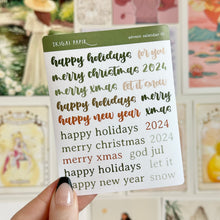 happy holidays for you
merry christmas 2024
merry xmas let it snow
happy holidays merry
happy new year xmas
happy holidays 2024
merry christmas 2024
merry xmas god jul
happy holidays let it
happy new year snow